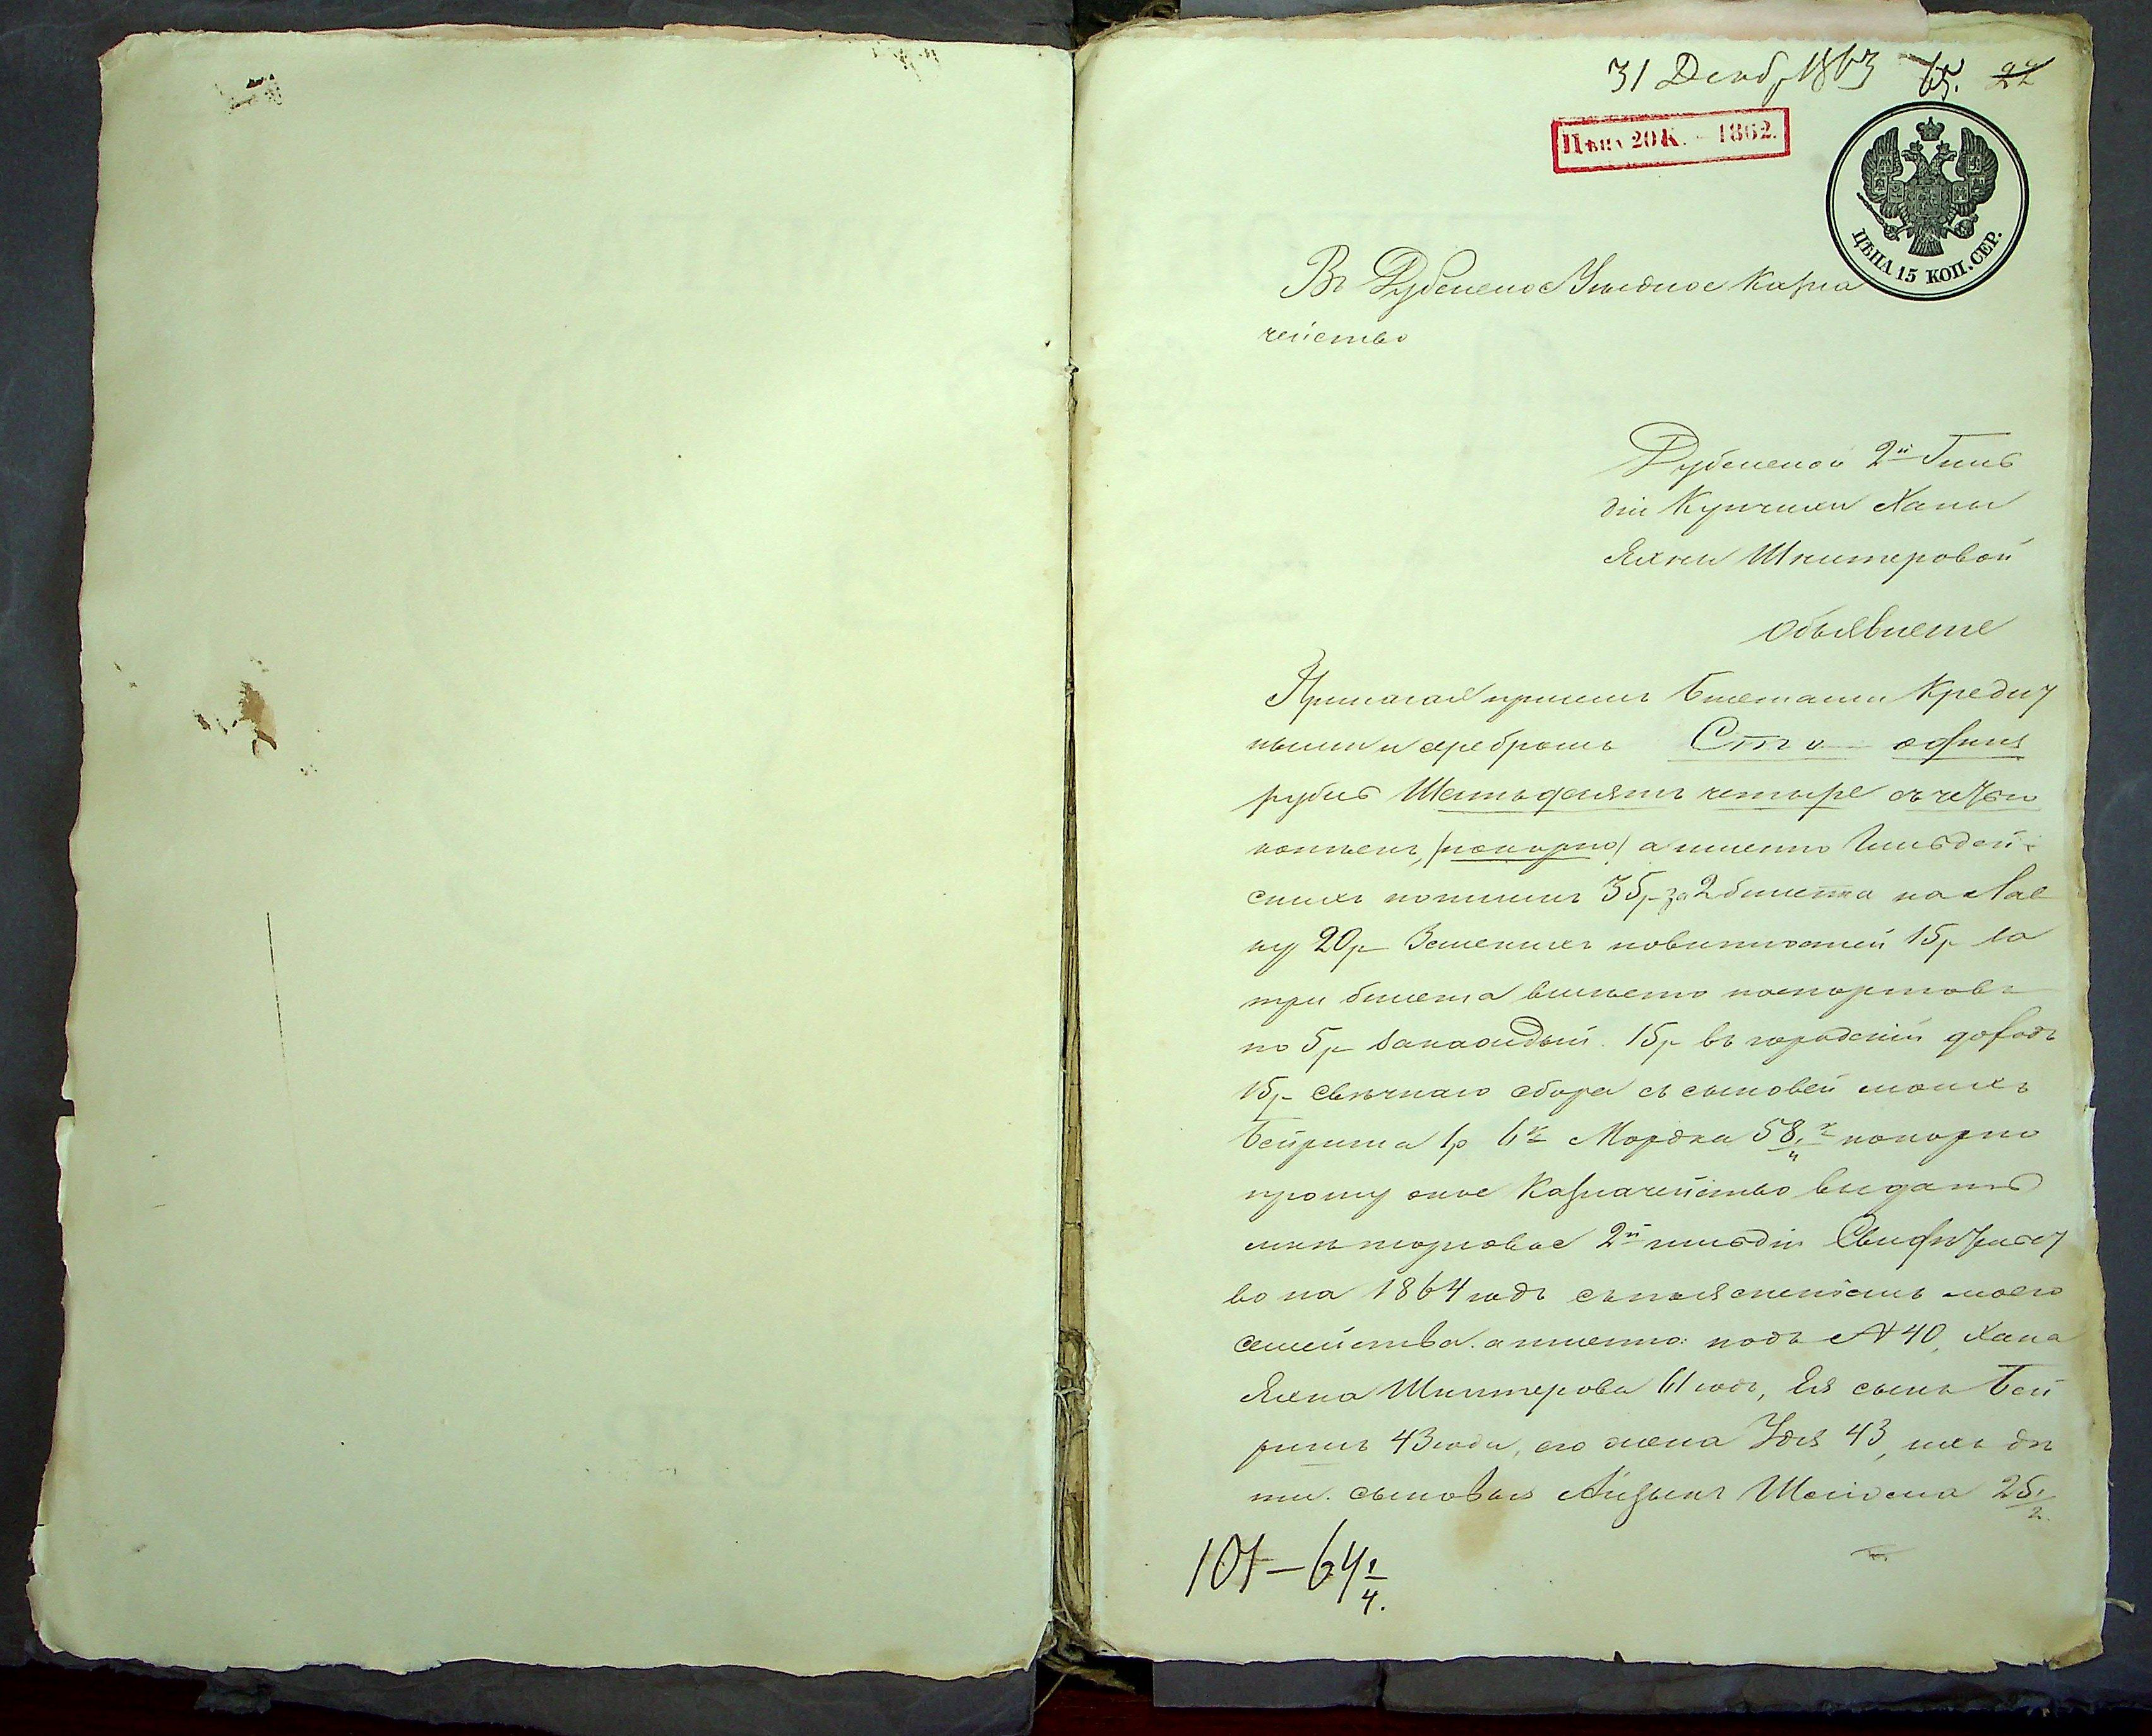 31 Декаб 1863 65. 22
Цѣна 20 К. - 1862.
ЦѢНА 15 КОП. СЕР.
Въ Дубенское Уѣздное Казна
чейство
Дубенской 2й Гиль
діи Купчихи Ханы
Яхни Шнитеровой
Объявленіе
Прилагая при семъ билетами Кредит
ными и серебромъ Сто один
рубль Шестьдесятъ четыре съ четвер
копѣекъ, (покорно) а именно Гильдей-
скихъ пошлинъ 35р за 2 билета на Лав
ку 20р Земскихъ повинностей 15р за
три билета вмѣсто паспортовъ
по 5р за каждый. 15р въ городской доходъ
15р свѣчнаго сбора съ сыновей моихъ
Бейриша 1р 6к Мордка 58 1/4 к покорно
прошу оное Казначейство выдать
мнѣ торговое 2й гильдіи Свидѣтельст
во на 1864 годъ съ поясненіемъ моего
семейства. а именно: подъ № 40, Хана
Яхна Шнитерова 61 годъ, Ея сынъ Бей
ришъ 43 года, его жена Удя 43, ихъ дѣ
ти. сыновья Айзыкъ 25 1/2.
101 – 64 1/4.